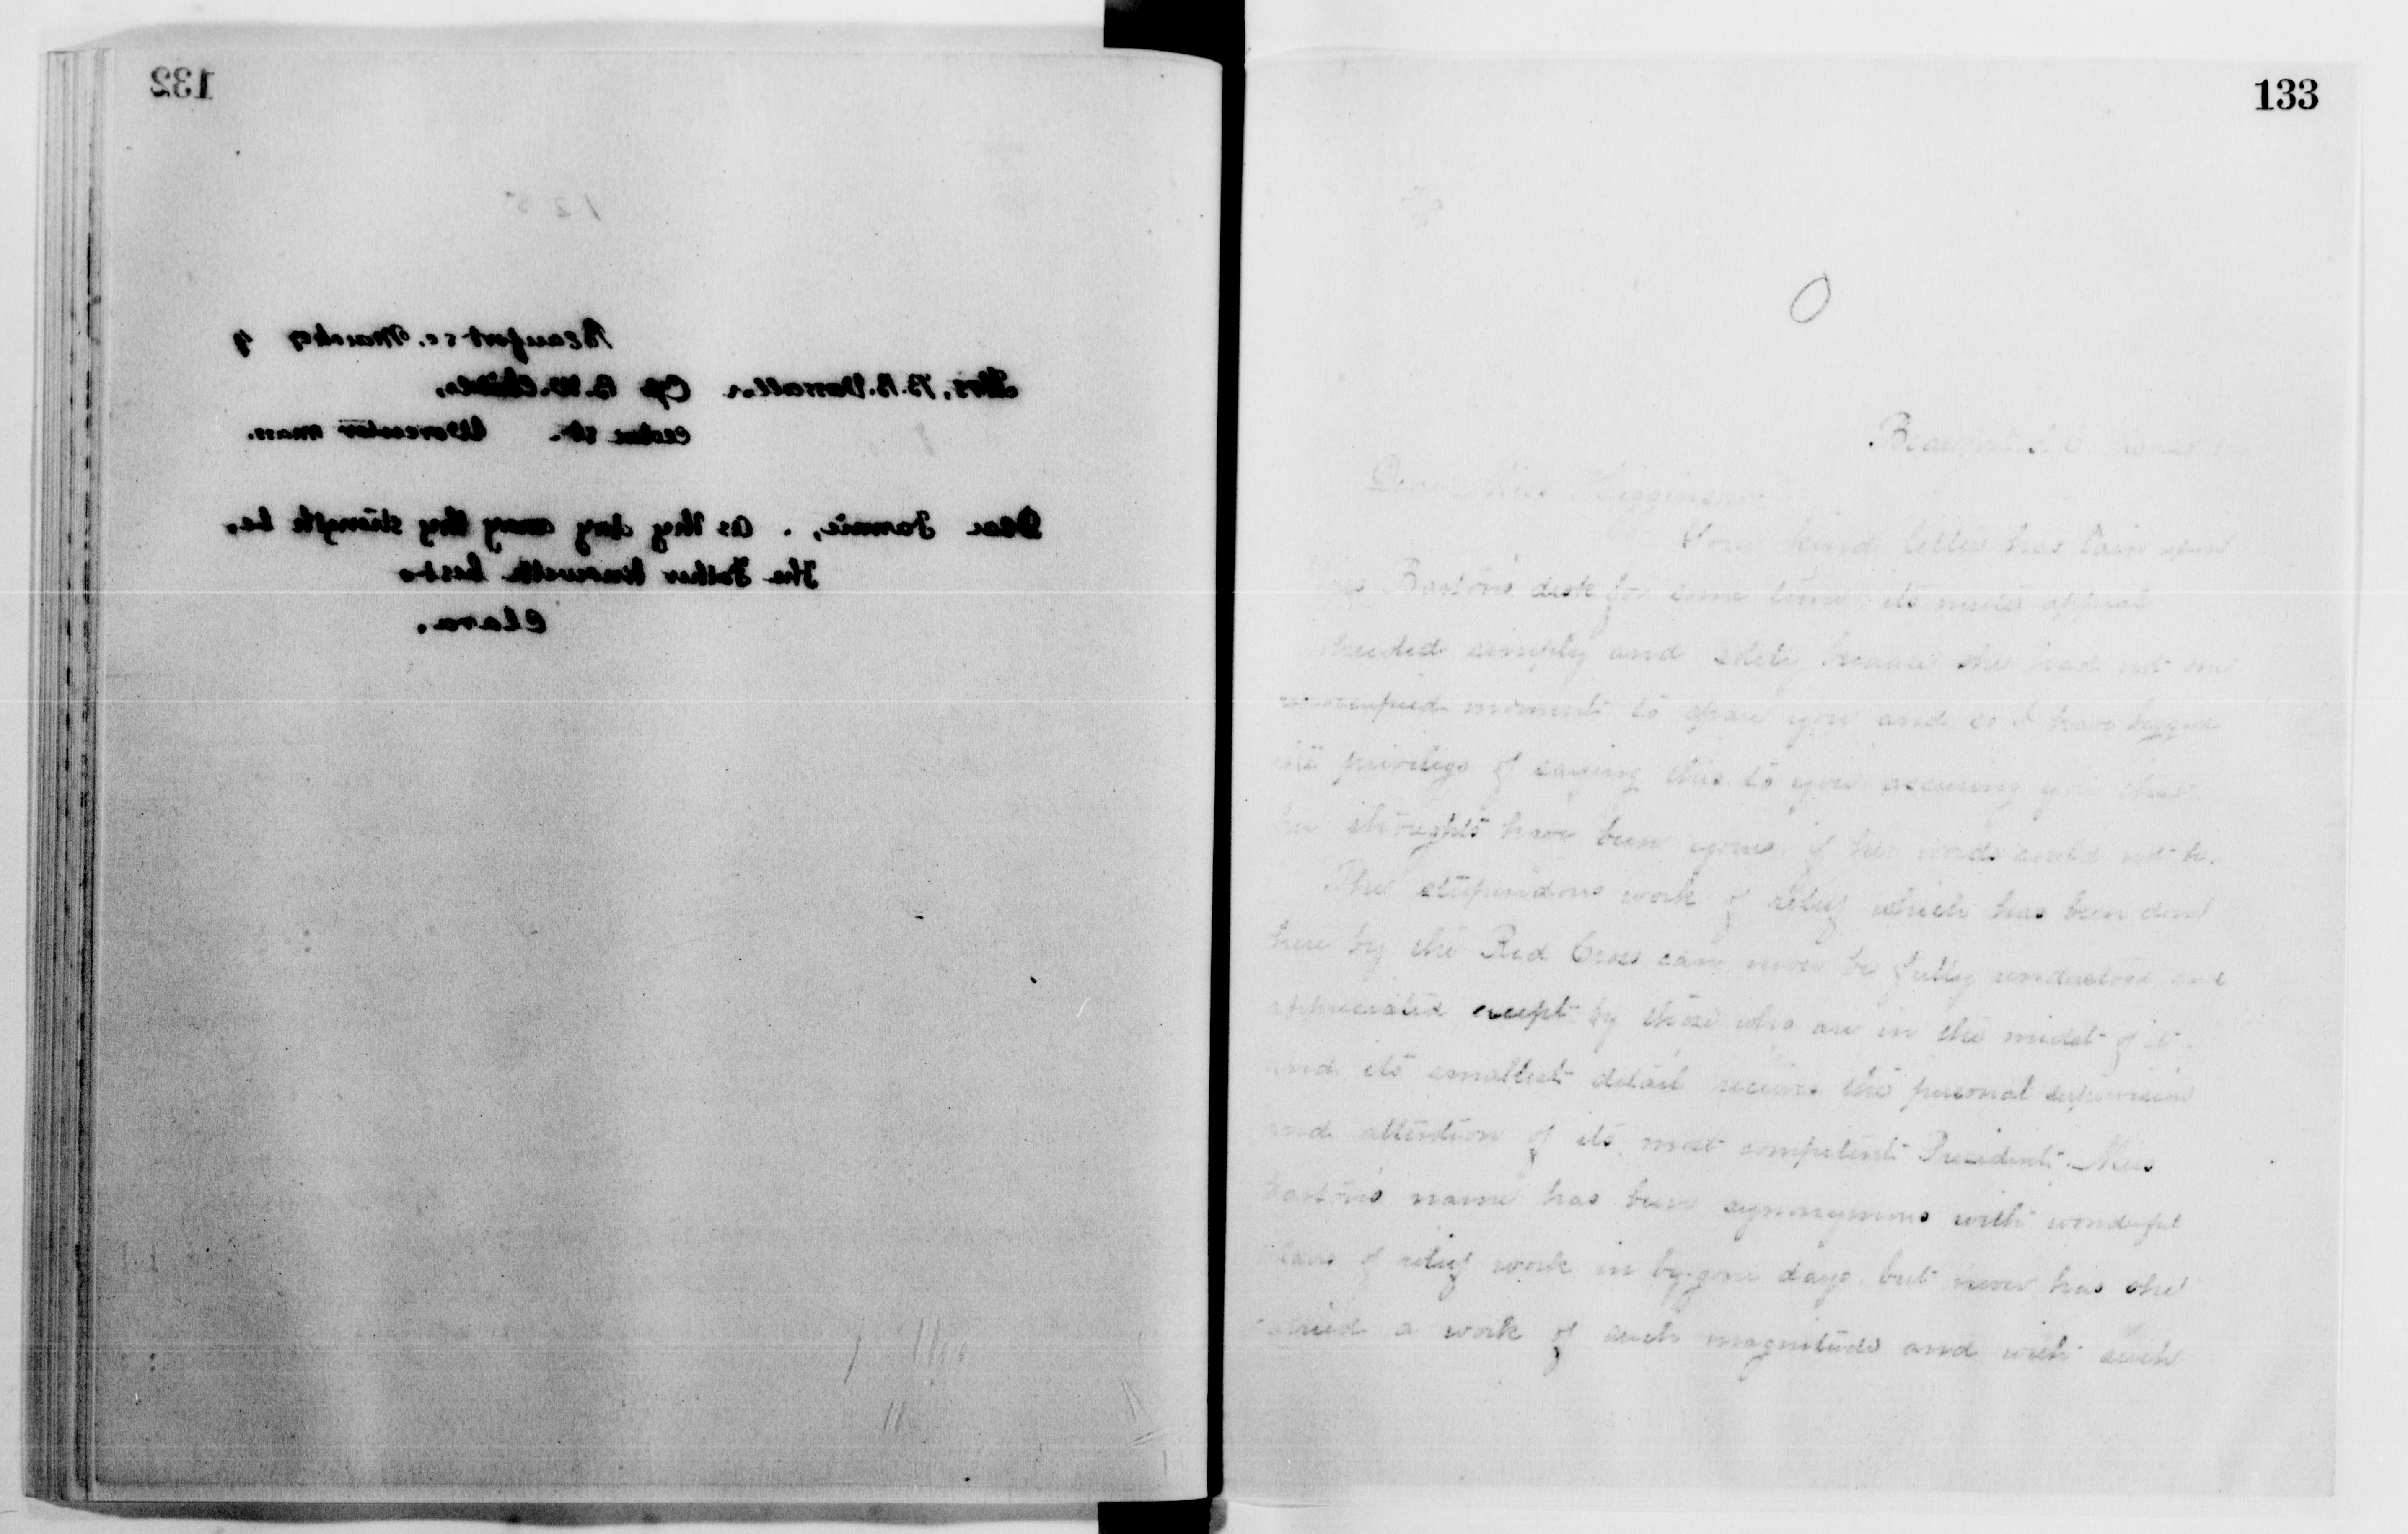 132
Beaufort s.c. March 9
Mrs. B.B. Vassall. C/o B.W. Childs,
Cedar St. Worcester Mass.
Dear Fannie, . As thy day may thy strength be.
The Father knoweth best.
Clara.
133
Beaufort S.C.
Dear Miss Higginson
Your kind letter has lain upon
Miss Barton's desk for some time, its mute appeal
unheeded simply and solely because she had not one
unoccupied moment to spare you and so I have begged
the privilege of saying this to you assuring you that
her thoughts have been yours if her words could not be.
The stupendous work of relief which has been done
here by the Red Cross can never be fully understood and
appreciated except by those who are in the midst of it.
and its smallest detail receives the personal supervision
and attention of its most competent President. Miss
Barton's name has been synonymous with wonderful
plans of relief work in by-gone days but never has she
carried a work of such magnitude and with such